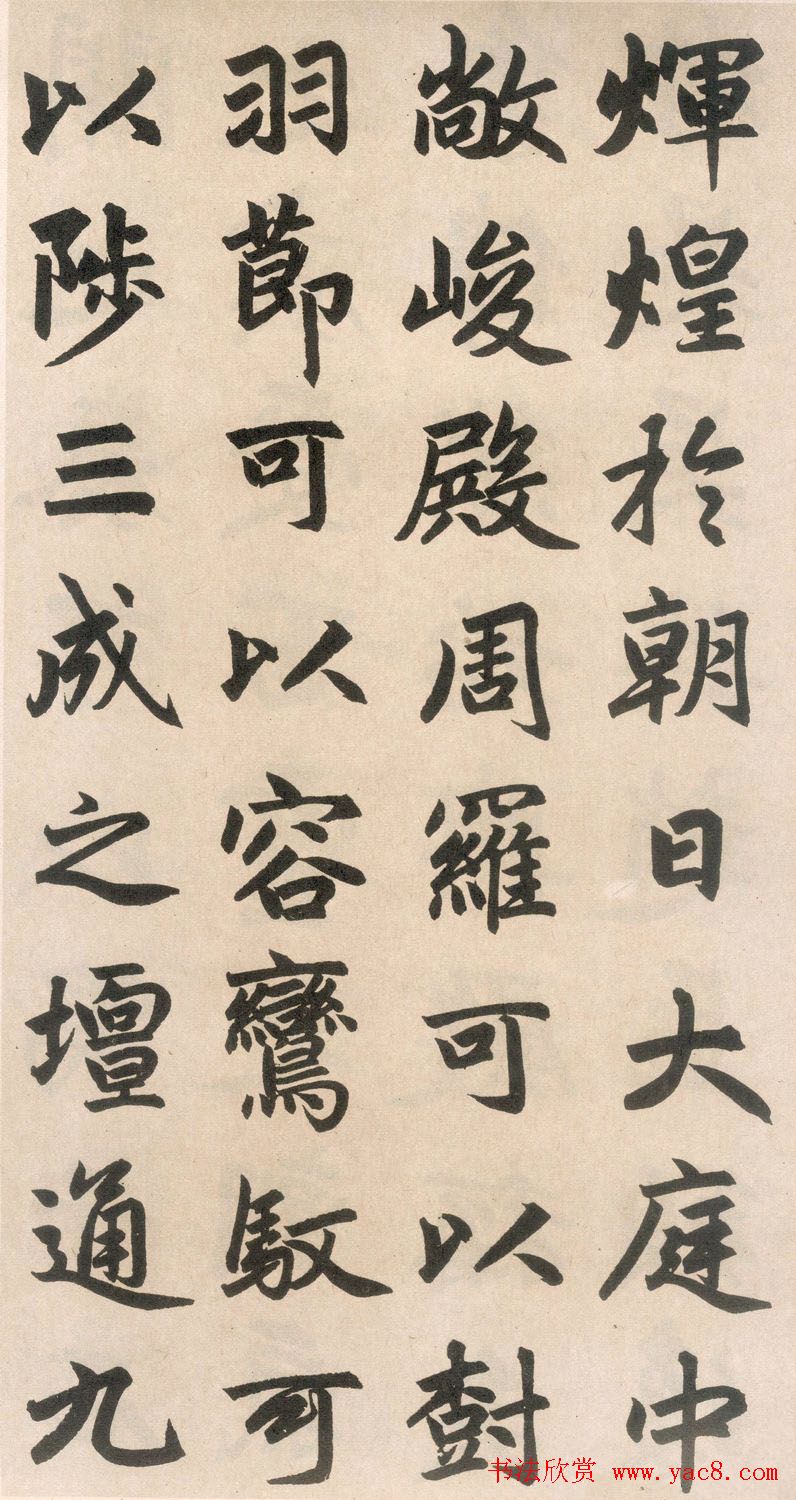 煇煌於朝日大庭中
敞峻殿周羅可以樹
羽節可以容鸞馭可
以陟三成之壇通九
书法欣赏 www.yac8.com